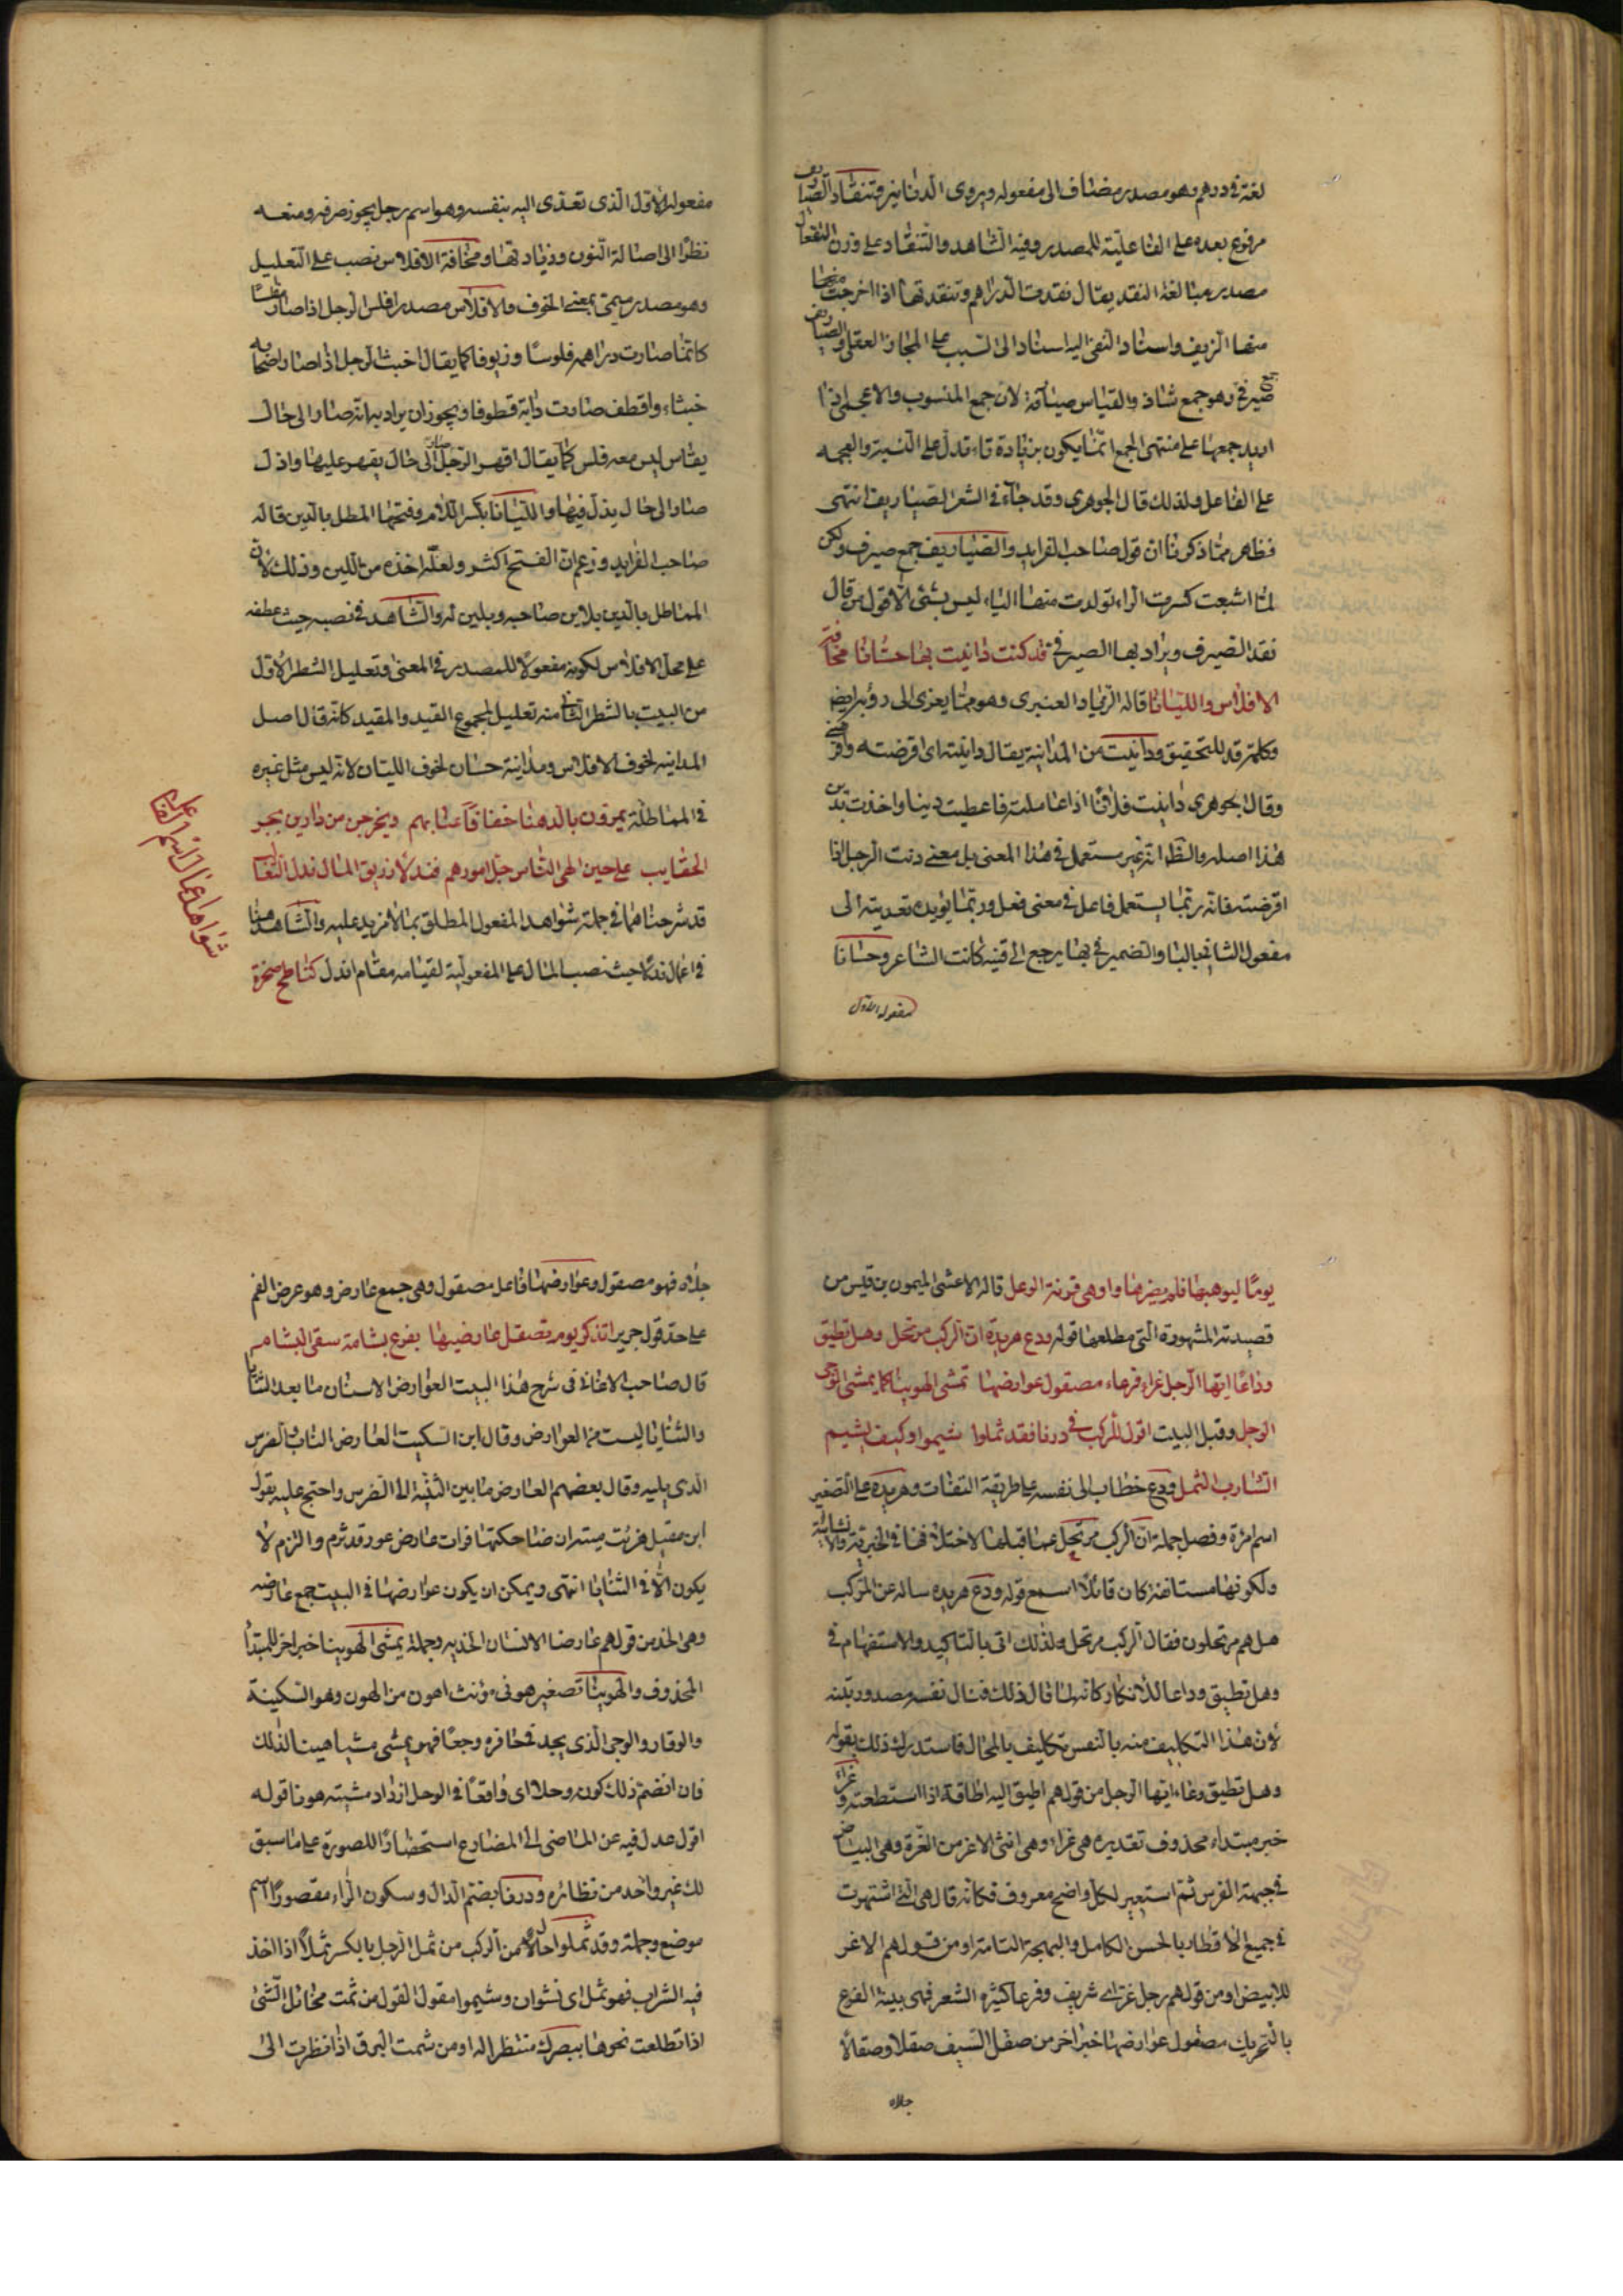 لغة فى درهم وهو مصدر مضاف الى مفعوله ويروى الدنانير وتنقاد الصياريف
مرفوع بعده على الفاعلية للمصدر وفيه الشاهد والتنقاد على وزن التفعال
مصدر مبالغة النقد يقال نقدت الدراهم وتنقدتها اذا اخرجت منها
منها الزيف واسناد النفى اليه اسناد الى السبب على المجاز العقلى والصياريف
جمع صيرفى وهو جمع شاذ والقياس صيارفة لان جمع المنسوب والاعجمى اذا
اريد جمعها على منتهى الجمع انما يكون بزيادة تاء تدل على النسبة والعجمه
على الفاعل ولذلك قال الجوهرى وقد جاء فى الشعر الصياريف انتهى
فظاهر مما ذكرنا ان قول صاحب الفرايد والصياريف جمع صيرف ولكن
لما اشبعت كسرت الراء تولدت منها الياء ليس بشئ الا قول من قال
نقد الصيرف ويراد بها الصيرفى قد كنت داينت بها حسانا مخافة
الافلاس والليانا قاله الزياد العنبرى وهو مما يعزى الى رؤبه ايضا
وكلمة قد للتحقيق وداينت من المداينة يقال داينته اى اقرضته واقرضنى
وقال الجوهرى داينت فلانا اذا عاملته فاعطيت دينا واخذت بدين
هذا اصله والظ انه غير مستعمل فى هذا المعنى بل معنى دنت الرجل اذا
اقرضته فانه ربما يستعمل فاعل فى معنى فعل وربما يؤيده تعديته الى
مفعول الثانى بالباء والضمير فى بها يرجع الى قينه كانت الشاعر وحسانا
مفعوله الاول
مفعوله الاول الذى تعدى اليه بنفسه وهو اسم رجل يجوز صرفه ومنعه
نظرا الى اصالة النون وزيادتها ومخافة الافلاس نصب على التعليل
وهو مصدر ميمى بمعنى الخوف والافلاس مصدر افلس الرجل اذا صار مفلسا
كانما صارت دراهمه فلوسا وزيوفا كما يقال اخبث الرجل اذا صار اصحابه
خبثاء واقطف صارت دابته قطوفا ويجوز ان يراد به انه صار الى حال
يقال ليس معه فلس كما يقال اقهر الرجل صار الى حال يقهر عليها واذل
صار الى حال يذل فيها والليانا بكسر اللام وفتحها المطل بالدين قاله
صاحب الفرايد وزعم ان الفتح اكثر ولعله اخذه من اللين وذلك لان
المماطل بالدين يلاين صاحبه ويلين له والشاهد فى نصبه حيث عطفه
على محل الافلاس لكونه مفعولا للمصدر فى المعنى وتعليل الشطر الاول
من البيت بالشطر الثانى منه تعليل لمجموع القيد والمقيد كانه قال اصل
المداينه لخوف الافلاس ومداينة حسان لخوف الليان لانه ليس مثل غيره
فى المماطلة يمرون بالدهنا خفافا عيابهم ويخرجن من دارين بجر
الحقايب على حين الهى الناس جل امورهم فندلا زريق المال ندل الثعالب
قد شرحناهما فى جملة شواهد المفعول المطلق بما لا مزيد عليه والشاهد هنا
فى اعمال ندلا حيث نصب المال على المفعولية لقيامه مقام اندل كناطح صخرة
شواهد اعمال اسم الفاعل عمله
يوما ليوهنها فلم يضرها واوهى قرنه الوعل قاله الاعشى الميمون بن قيس من
قصيدته المشهورة التى مطلعها قوله ودع هريرة ان الركب مرتحل وهل تطيق
وداعا ايها الرجل غراء فرعاء مصقول عوارضها تمشى الهوينا كما يمشى الوجى
الوجل وقبل البيت اقول للركب فى درنا فقد ثملوا شيموا وكيف يشيم
الشارب الثمل ودع خطاب الى نفسه على طريقة التفات وهريرة على التصغير
اسم امرة وفصل جملة ان الركب مرتحل عما قبلها لاختلافها فى الخبرية والانشائية
ولكونها مستانفة كان قائلا اسمع قوله ودع هريره ساله عن الركب
هل هم مرتحلون فقال الركب مرتحل ولذلك اتى بالتاكيد والاستفهام فى
وهل تطيق وداعا للانكار كانه لما قال ذلك فنال نفسه صدور بينه
لان هذا التكليف منه بالنفس تكليف بالمحال فاستدرك ذلك بقوله
وهل تطيق وداعا ايها الرجل من قولهم اطيق اليه اطاقة اذا استطعته وغراء
خبر مبتداء محذوف تقديره هى غراء وهى انثى الاغر من الغرة وهى البياض
فى جبهة الفرس ثم استعير لكل واضح معروف فكانه قال هى التى اشتهرت
فى جميع الاقطار بالحسن الكامل والبهجة التامة او من قولهم الاغر
للابيض او من قولهم رجل غر اى شريف وفرعا كثيرة الشعر فهى بينة الفرع
بالتحريك مصقول عوارضها خبر اخر من صقل السيف صقلا وصقالا
جلاه
جلاه فهو مصقول وعوارضها فاعل مصقول وهى جمع عارض وهو عرض الفم
على حد قول جرير اتذكر يوم تصقل عارضيها بفرع بشامة سقى البشام
قال صاحب الاغانى فى شرح هذا البيت العوارض الاسنان ما بعد الثنايا
والثنايا ليست من العوارض وقال ابن السكيت العارض الناب والضرس
الذى يليه وقال بعضهم العارض ما بين الثنية الى الضرس واحتج عليه بقول
ابن مقبل هزئت ميته ان ضاحكتها فرات عارض عود قد ثرم والثرم لا
يكون الا فى الثنايا انتهى ويمكن ان يكون عوارضها فى البيت جمع عارضه
وهى الخد من قولهم عارضا الانسان لخديه وجملة يمشى الهوينا خبر اخر للمبتدا
المحذوف والهوينا تصغير هونى مؤنث اهون من الهون وهو السكينة
والوقار والوجى الذى يجد فى حافره وجعا فهو يمشى مشيا هينا لذلك
فان انضم ذلك كونه وحلا اى واقعا فى الوحل ازداد مشيته هونا قوله
اقول عدل فيه عن الماضى الى المضارع استحضارا للصورة على ما سبق
لك غير واحد من نظائره ودرنا بضم الدال وسكون الراء مقصورا اسم
موضع وجملة وقد ثملوا حال من الركب من ثمل الرجل بالكسر ثملا اذا اخذ
فيه الشراب فهو ثمل اى نشوان وشيموا مقول القول من شمت مخائل الشئ
اذا تطلعت نحوها ببصرك منتظرا له او من شمت البرق اذا نظرت الى